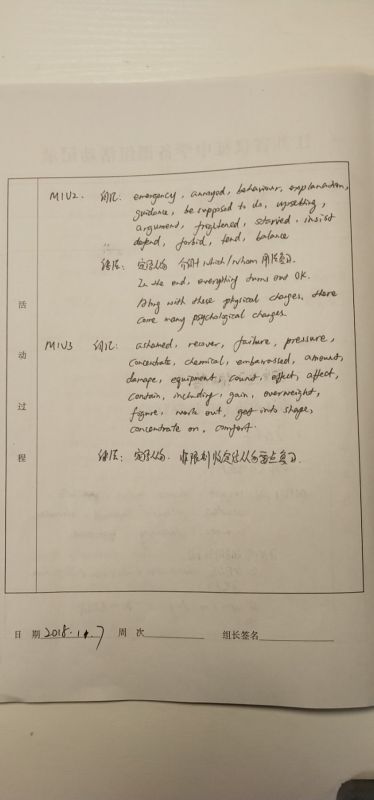 M1U2. 词汇: emergency, annoyed, behaviour, explanation,
guidance, be supposed to do, upsetting,
argument, frightened, starved, insist
defend, forbid, tend, balance
语法: 定语从句 介词+which/whom 用法复习.
In the end, everything turns out OK.
Along with these physical changes, there
come many psychological changes.
M1U3 词汇: ashamed, recover, failure, pressure,
concentrate, chemical, embarrassed, amount,
damage, equipment, count, effect, affect,
contain, including, gain, overweight,
figure, work out, get into shape,
concentrate on, comfort.
语法: 定语从句. 非限制性定语从句重点复习.
活动过程
日 期 2018.11.7 周 次 组长签名